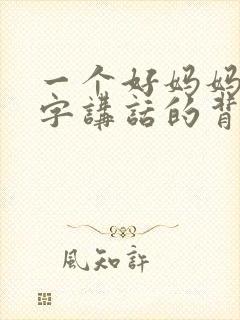 一个好妈妈
字講話的背
風知許